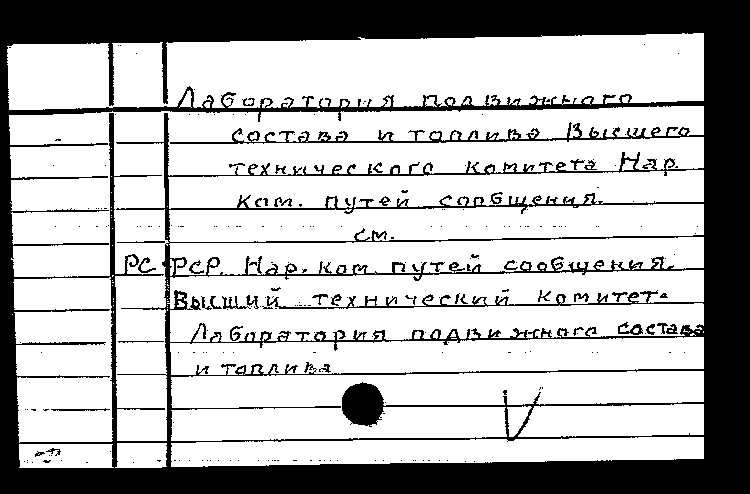 Лаборатория подвижного
состава и топлива Высшего
технического комитета Нар.
ком. путей сообщения.
см.
РСФСР. Нар. ком. путей сообщения.
Высший технический комитет.
Лаборатория подвижного состава
и топлива